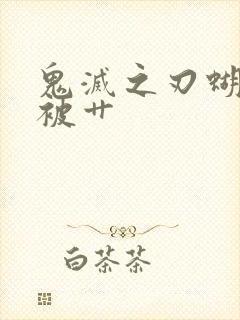 鬼滅之刃蝴
被艹
白茶茶